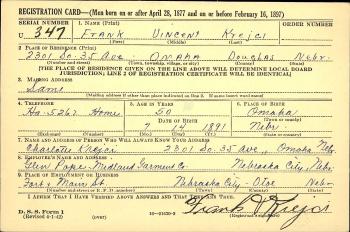 REGISTRATION CARD—(Men born on or after April 28, 1877 and on or before February 16, 1897)
SERIAL NUMBER
1. NAME (Print)
ORDER NUMBER
U 347 Frank Vincent Krejci
(First) (Middle) (Last)
2. PLACE OF RESIDENCE (Print)
2301 So. 35 Ave Omaha Douglas Nebr.
(Number and street) (Town, township, village, or city) (County) (State)
[THE PLACE OF RESIDENCE GIVEN ON THE LINE ABOVE WILL DETERMINE LOCAL BOARD
JURISDICTION; LINE 2 OF REGISTRATION CERTIFICATE WILL BE IDENTICAL]
3. MAILING ADDRESS
Same
[Mailing address if other than place indicated on line 2. If same insert word same]
4. TELEPHONE
5. AGE IN YEARS
6. PLACE OF BIRTH
Ha-5267 Home 50 Omaha
DATE OF BIRTH
1891 Nebr
7. NAME AND ADDRESS OF PERSON WHO WILL ALWAYS KNOW YOUR ADDRESS
Charlotte Krejci 2301 So. 35 Ave. Omaha Nebr
8. EMPLOYER'S NAME AND ADDRESS
Midland Garment Co. Nebraska City, Nebr
9. PLACE OF EMPLOYMENT OR BUSINESS
Main St Nebraska City - Otoe Nebr
(Number and street or R. F. D. number) (Town) (County) (State)
I AFFIRM THAT I HAVE VERIFIED ABOVE ANSWERS AND THAT THEY ARE TRUE.
D. S. S. Form 1
(Revised 4-1-42) (over)
Frank V Krejci
(Registrant's signature)